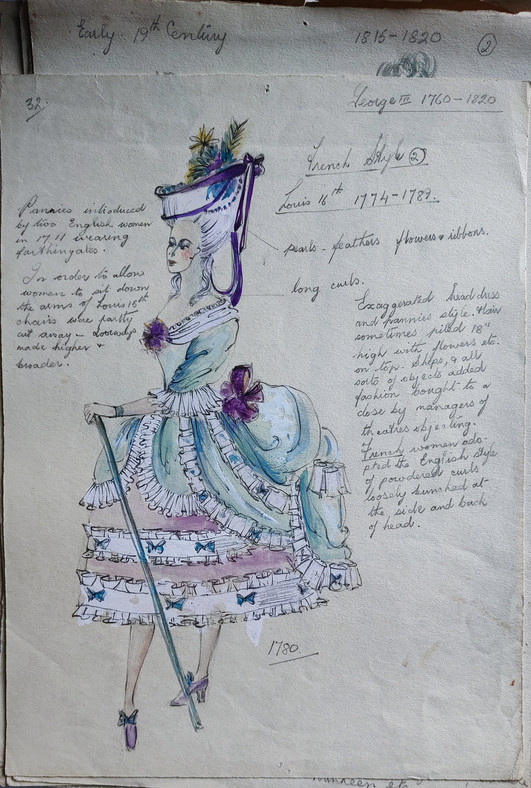 Early 19th Century
1815-1820
2
32.
George III 1760-1820
French Style 2
Louis 16th 1774-1789.
pearls - feathers flowers & ribbons.
long curls.
Pannies introduced
by two English women
in 1711 wearing
farthingales.
In order to allow
women to sit down
the arms of Louis 15th
chairs were partly
cut away - doorways
made higher &
broader.
Exaggerated headdress
and pannies style. Hair
sometimes piled 18"
high with flowers etc.
on top. Ships, & all
sorts of objects added
fashion bought to a
close by managers of
theatres objecting.
French women ado-
pted the English style
of powdered curls
loosely bunched at
the side and back
of head.
1780.
etc